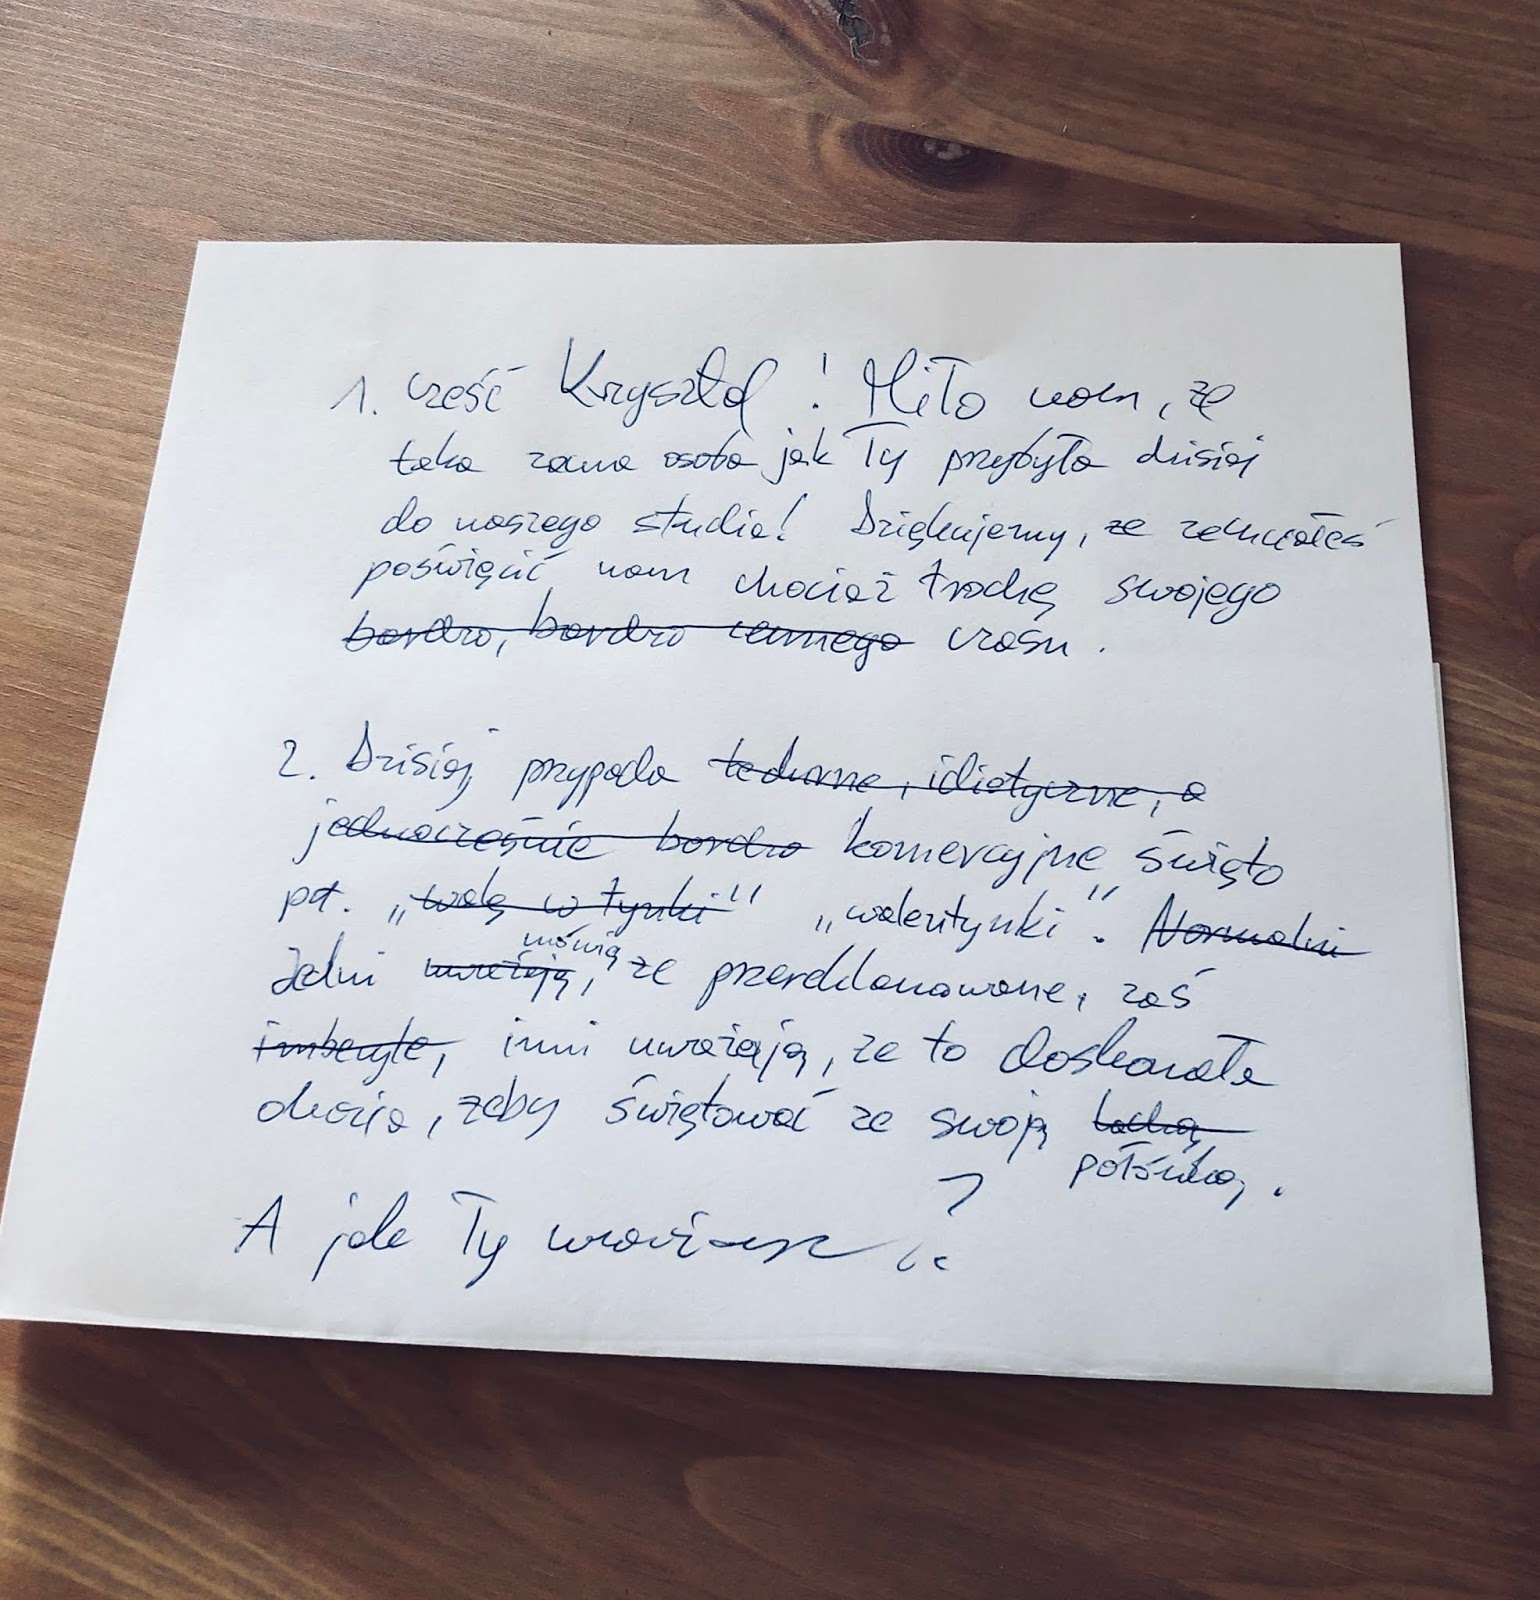 1. Cześć Krysztof! Miło nam, że
taka zacna osoba jak Ty przybyła dzisiaj
do naszego studia! Dziękujemy, że zechciałeś
poświęcić nam chociaż trochę swojego
bardzo, bardzo cennego czasu.
2. Dzisiaj przypada techniczne, idiotyczne, a
jednocześnie bardzo komercyjne święto
pt. „walę w tynki" „walentynki". Normalni
Jedni uważają, mówią że przereklamowane, zaś
imbecyle, inni uważają, że to doskonała
okazja, żeby świętować ze swoją lochą
połówką.
A jak Ty uważasz?